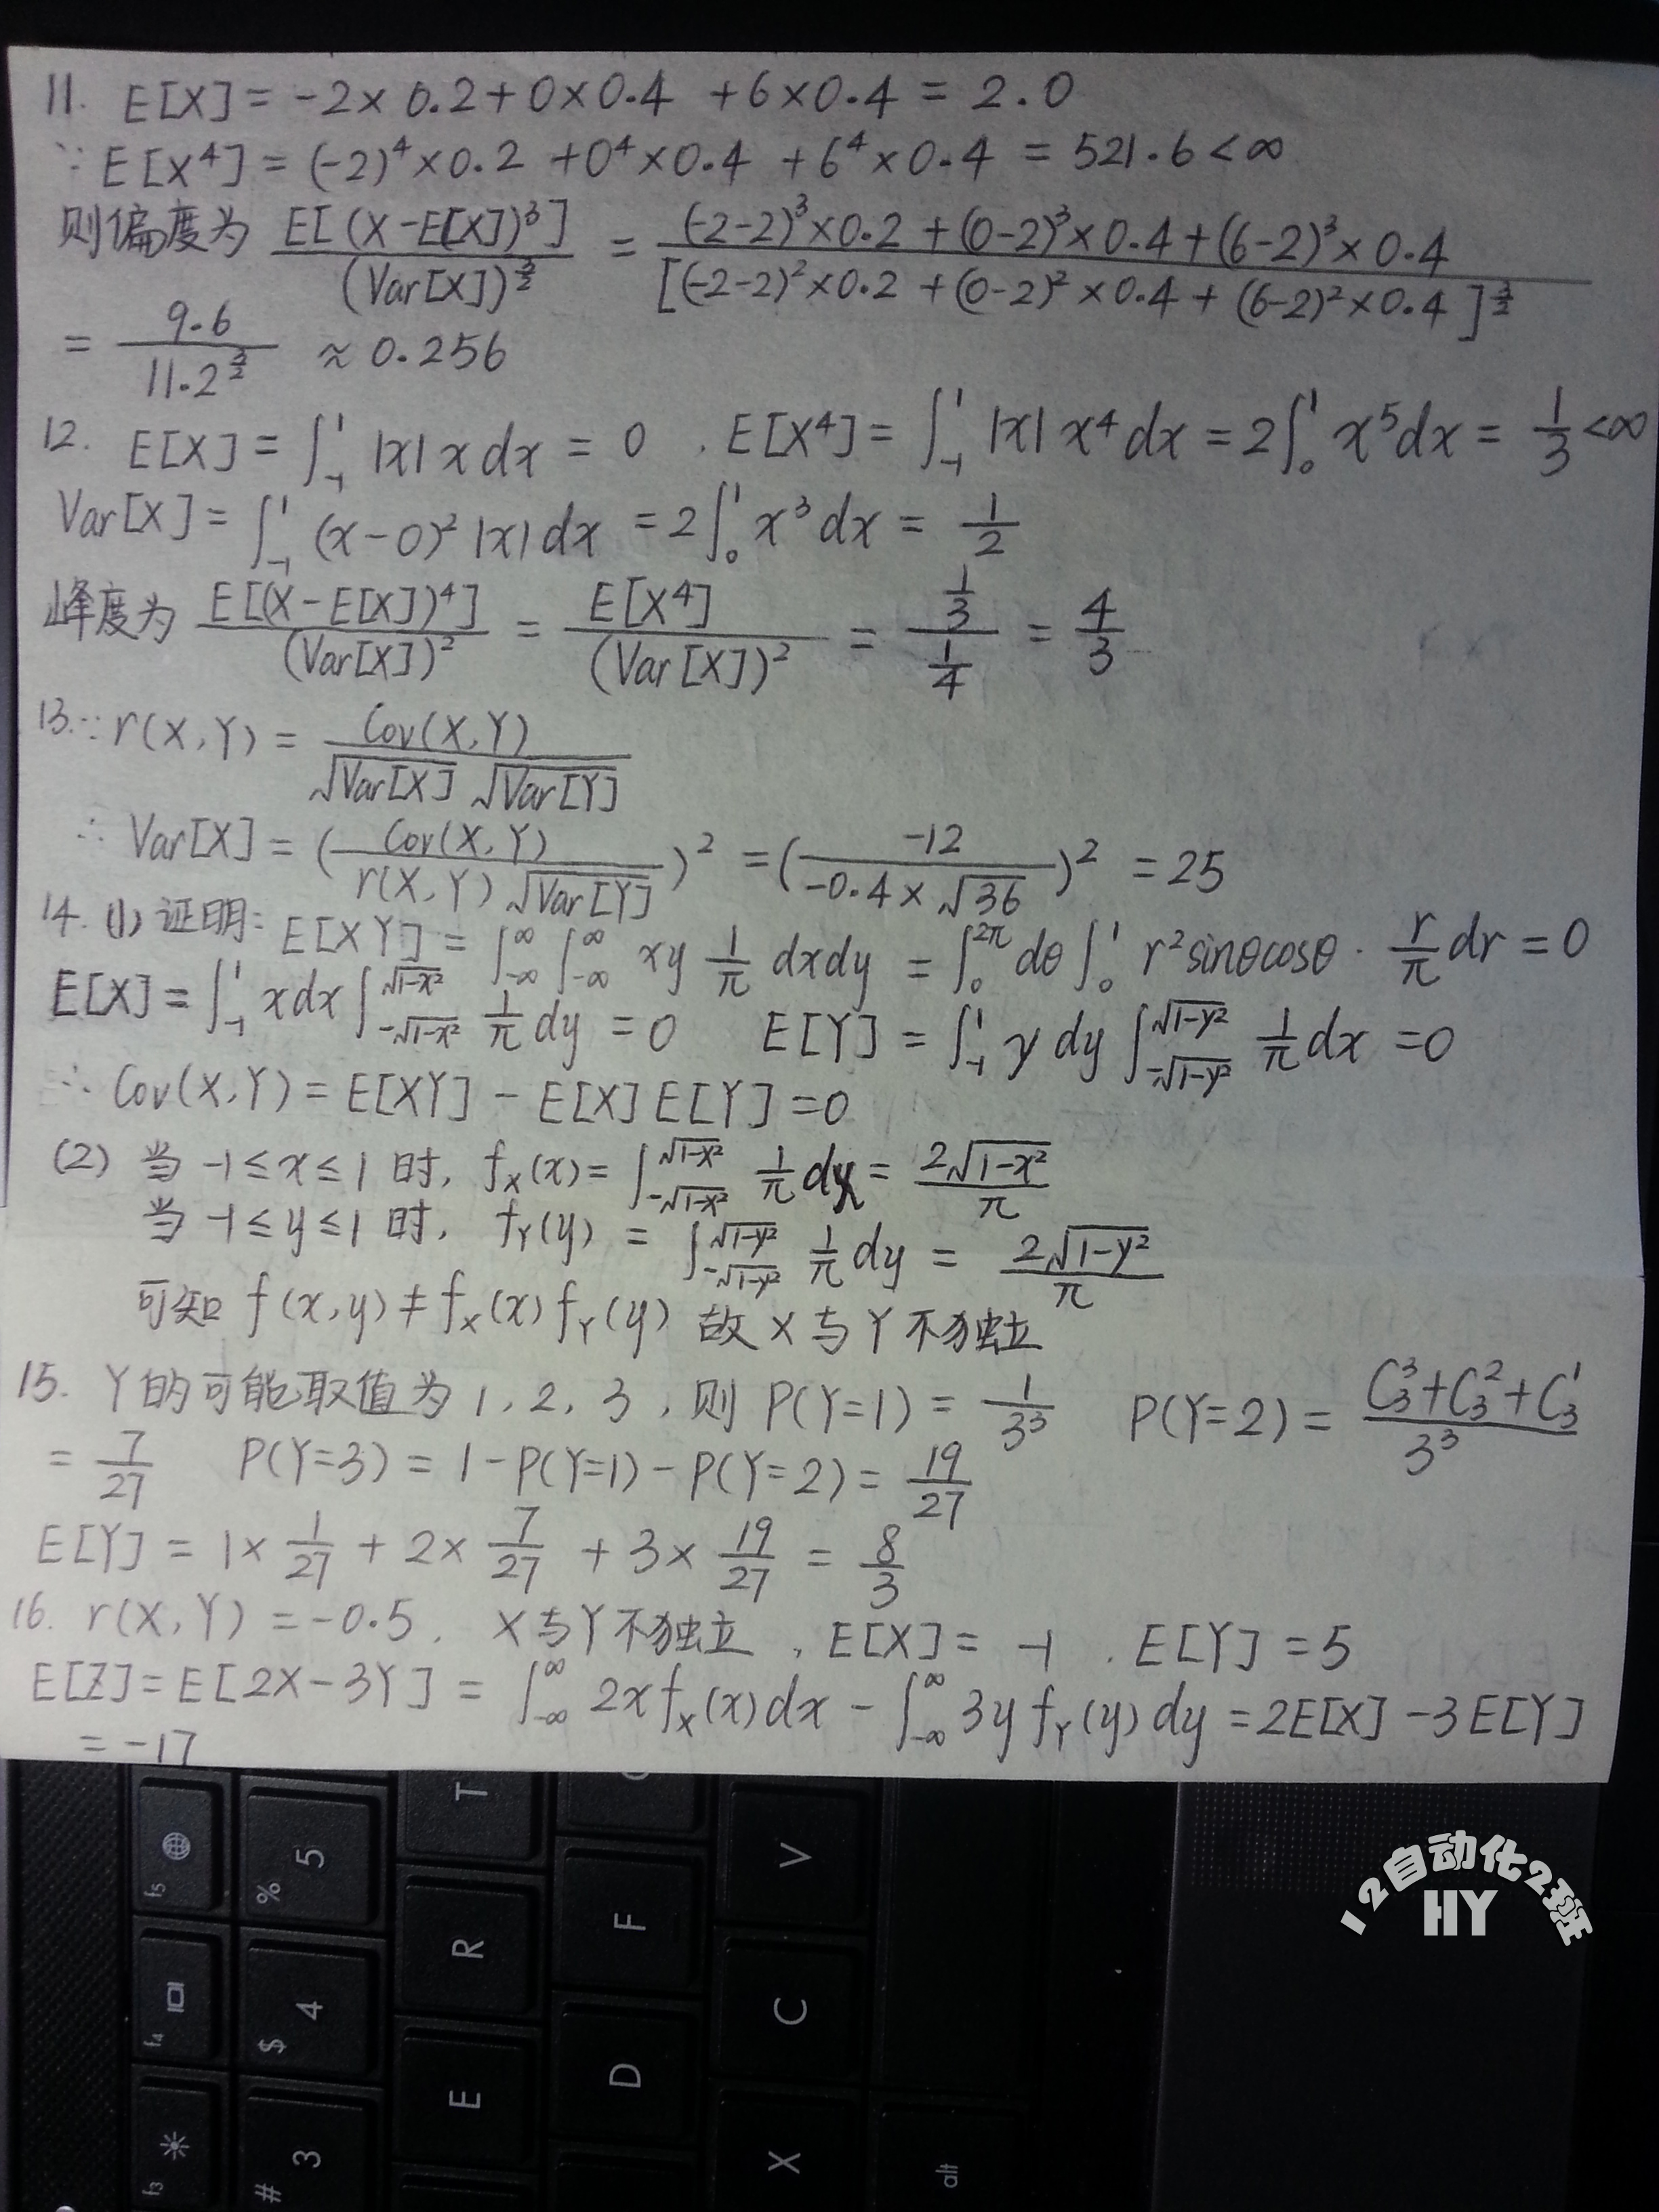 11. E[X] = -2×0.2+0×0.4 +6×0.4 = 2.0
∵ E[X⁴] = (-2)⁴×0.2 +0⁴×0.4 +6⁴×0.4 = 521.6<∞
则偏度为 E[(X-E[X])³]/(Var[X])^(3/2) = ((-2-2)³×0.2+(0-2)³×0.4+(6-2)³×0.4)/[(-2-2)²×0.2+(0-2)²×0.4+(6-2)²×0.4]^(3/2)
= 9.6/11.2^(3/2) ≈ 0.256
12. E[X] = ∫₋₁¹ |x| x dx = 0 . E[X⁴] = ∫₋₁¹ |x| x⁴ dx = 2∫₀¹ x⁵dx = 1/3 <∞
Var[X] = ∫₋₁¹ (x-0)² |x| dx = 2∫₀¹ x³ dx = 1/2
峰度为 E[(X-E[X])⁴]/(Var[X])² = E[X⁴]/(Var[X])² = (1/3)/(1/4) = 4/3
13. ∵ r(X,Y) = Cov(X,Y)/(√Var[X] √Var[Y])
∴ Var[X] = (Cov(X,Y)/(r(X,Y)√Var[Y]))² = (-12/(-0.4×√36))² = 25
14. (1) 证明: E[XY] = ∫₋∞^∞ ∫₋∞^∞ xy 1/π dxdy = ∫₀^2π dθ ∫₀¹ r²sinθcosθ · r/π dr = 0
E[X] = ∫₋₁¹ x dx ∫_(-√(1-x²))^(√(1-x²)) 1/π dy = 0 E[Y] = ∫₋₁¹ y dy ∫_(-√(1-y²))^(√(1-y²)) 1/π dx = 0
∴ Cov(X,Y) = E[XY] - E[X]E[Y] = 0
(2) 当 -1≤x≤1 时, f_X(x) = ∫_(-√(1-x²))^(√(1-x²)) 1/π dy = 2√(1-x²)/π
当 -1≤y≤1 时, f_Y(y) = ∫_(-√(1-y²))^(√(1-y²)) 1/π dy = 2√(1-y²)/π
可知 f(x,y) ≠ f_X(x) f_Y(y) 故 X 与 Y 不独立
15. Y的可能取值为 1, 2, 3, 则 P(Y=1) = 1/3³ P(Y=2) = (C₃³+C₃²+C₃¹)/3³
= 7/27 P(Y=3) = 1-P(Y=1)-P(Y=2) = 19/27
E[Y] = 1×1/27 + 2×7/27 + 3×19/27 = 8/3
16. r(X,Y) = -0.5, X与Y不独立, E[X] = -1 . E[Y] = 5
E[Z] = E[2X-3Y] = ∫₋∞^∞ 2x f_X(x)dx - ∫₋∞^∞ 3y f_Y(y)dy = 2E[X] - 3E[Y]
= -17
f5
% 5
T
V
f4
$ 4
R
F
C
f3
# 3
E
D
X
alt
12自动化2班
HY